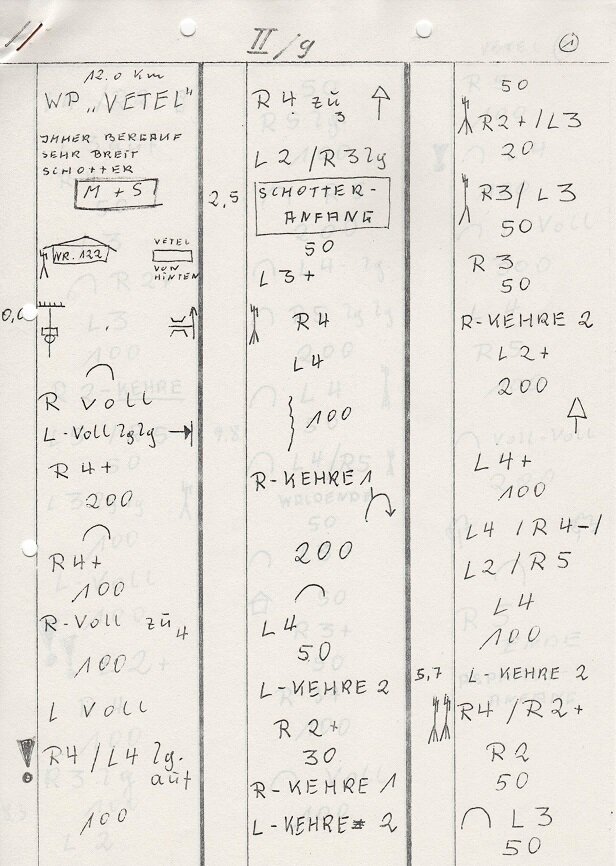 II/g
1
12.0 Km
WP „VETEL"
IMMER BERGAUF
SEHR BREIT
SCHOTTER
M + S
WR. 122
VETEL
VON
HINTEN
L 3
100
R VOLL
L-VOLL lglg
R 4+
200
R 4+
100
R-VOLL zü 4
100
L VOLL
R4 / L4 lg.
auf
100
R 4 zü 3
L 2 / R 3 lg
2,5
SCHOTTER-
ANFANG
50
L 3+
R 4
L 4
100
R-KEHRE 1
200
L 4
50
L-KEHRE 2
R 2+
30
R-KEHRE 1
L-KEHRE 2
50
R 2+ / L 3
20
R3 / L 3
50
R 3
50
R-KEHRE 2
L 2+
200
L 4+
100
L4 / R4-/
L2 / R 5
L 4
100
5,7
L-KEHRE 2
R4 / R2+
R 2
50
L 3
50